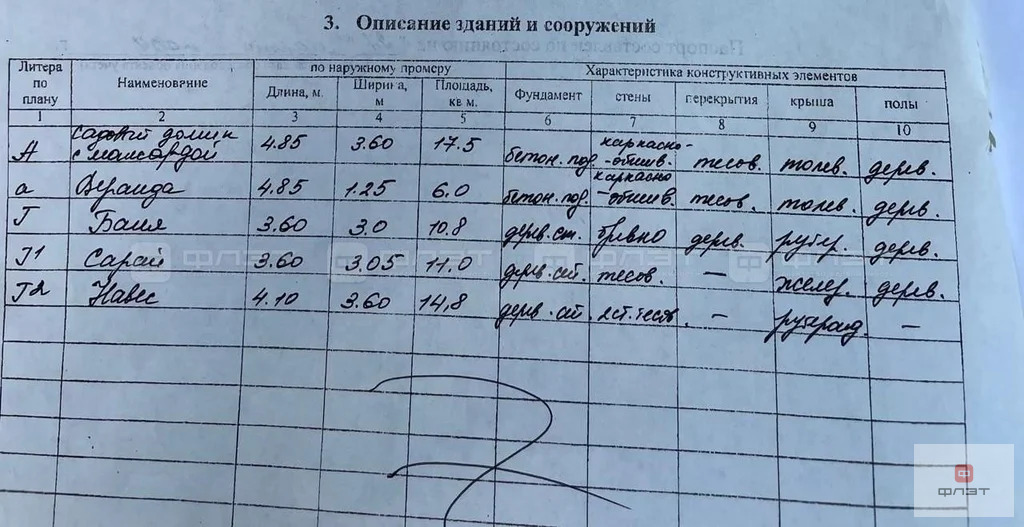 3. Описание зданий и сооружений
Литера по плану Наименование по наружному промеру Характеристика конструктивных элементов
Длина, м. Ширина, м Площадь, кв м. Фундамент стены перекрытия крыша полы
1 2 3 4 5 6 7 8 9 10
А Садовый домик с мансардой 4.85 3.60 17.5 бетон. под. каркасно-обшив. тесов. толев. дерев.
а Веранда 4.85 1.25 6.0 бетон. под. каркасно-обшив. тесов. толев. дерев.
Г Баня 3.60 3.0 10.8 дерев. ст. бревно дерев. рубер. дерев.
Г1 Сарай 3.60 3.05 11.0 дерев. ст. тесов. — желез. дерев.
Г2 Навес 4.10 3.60 14,8 дерев. ст. тесов. — рубероид. —
ФЛЭТ